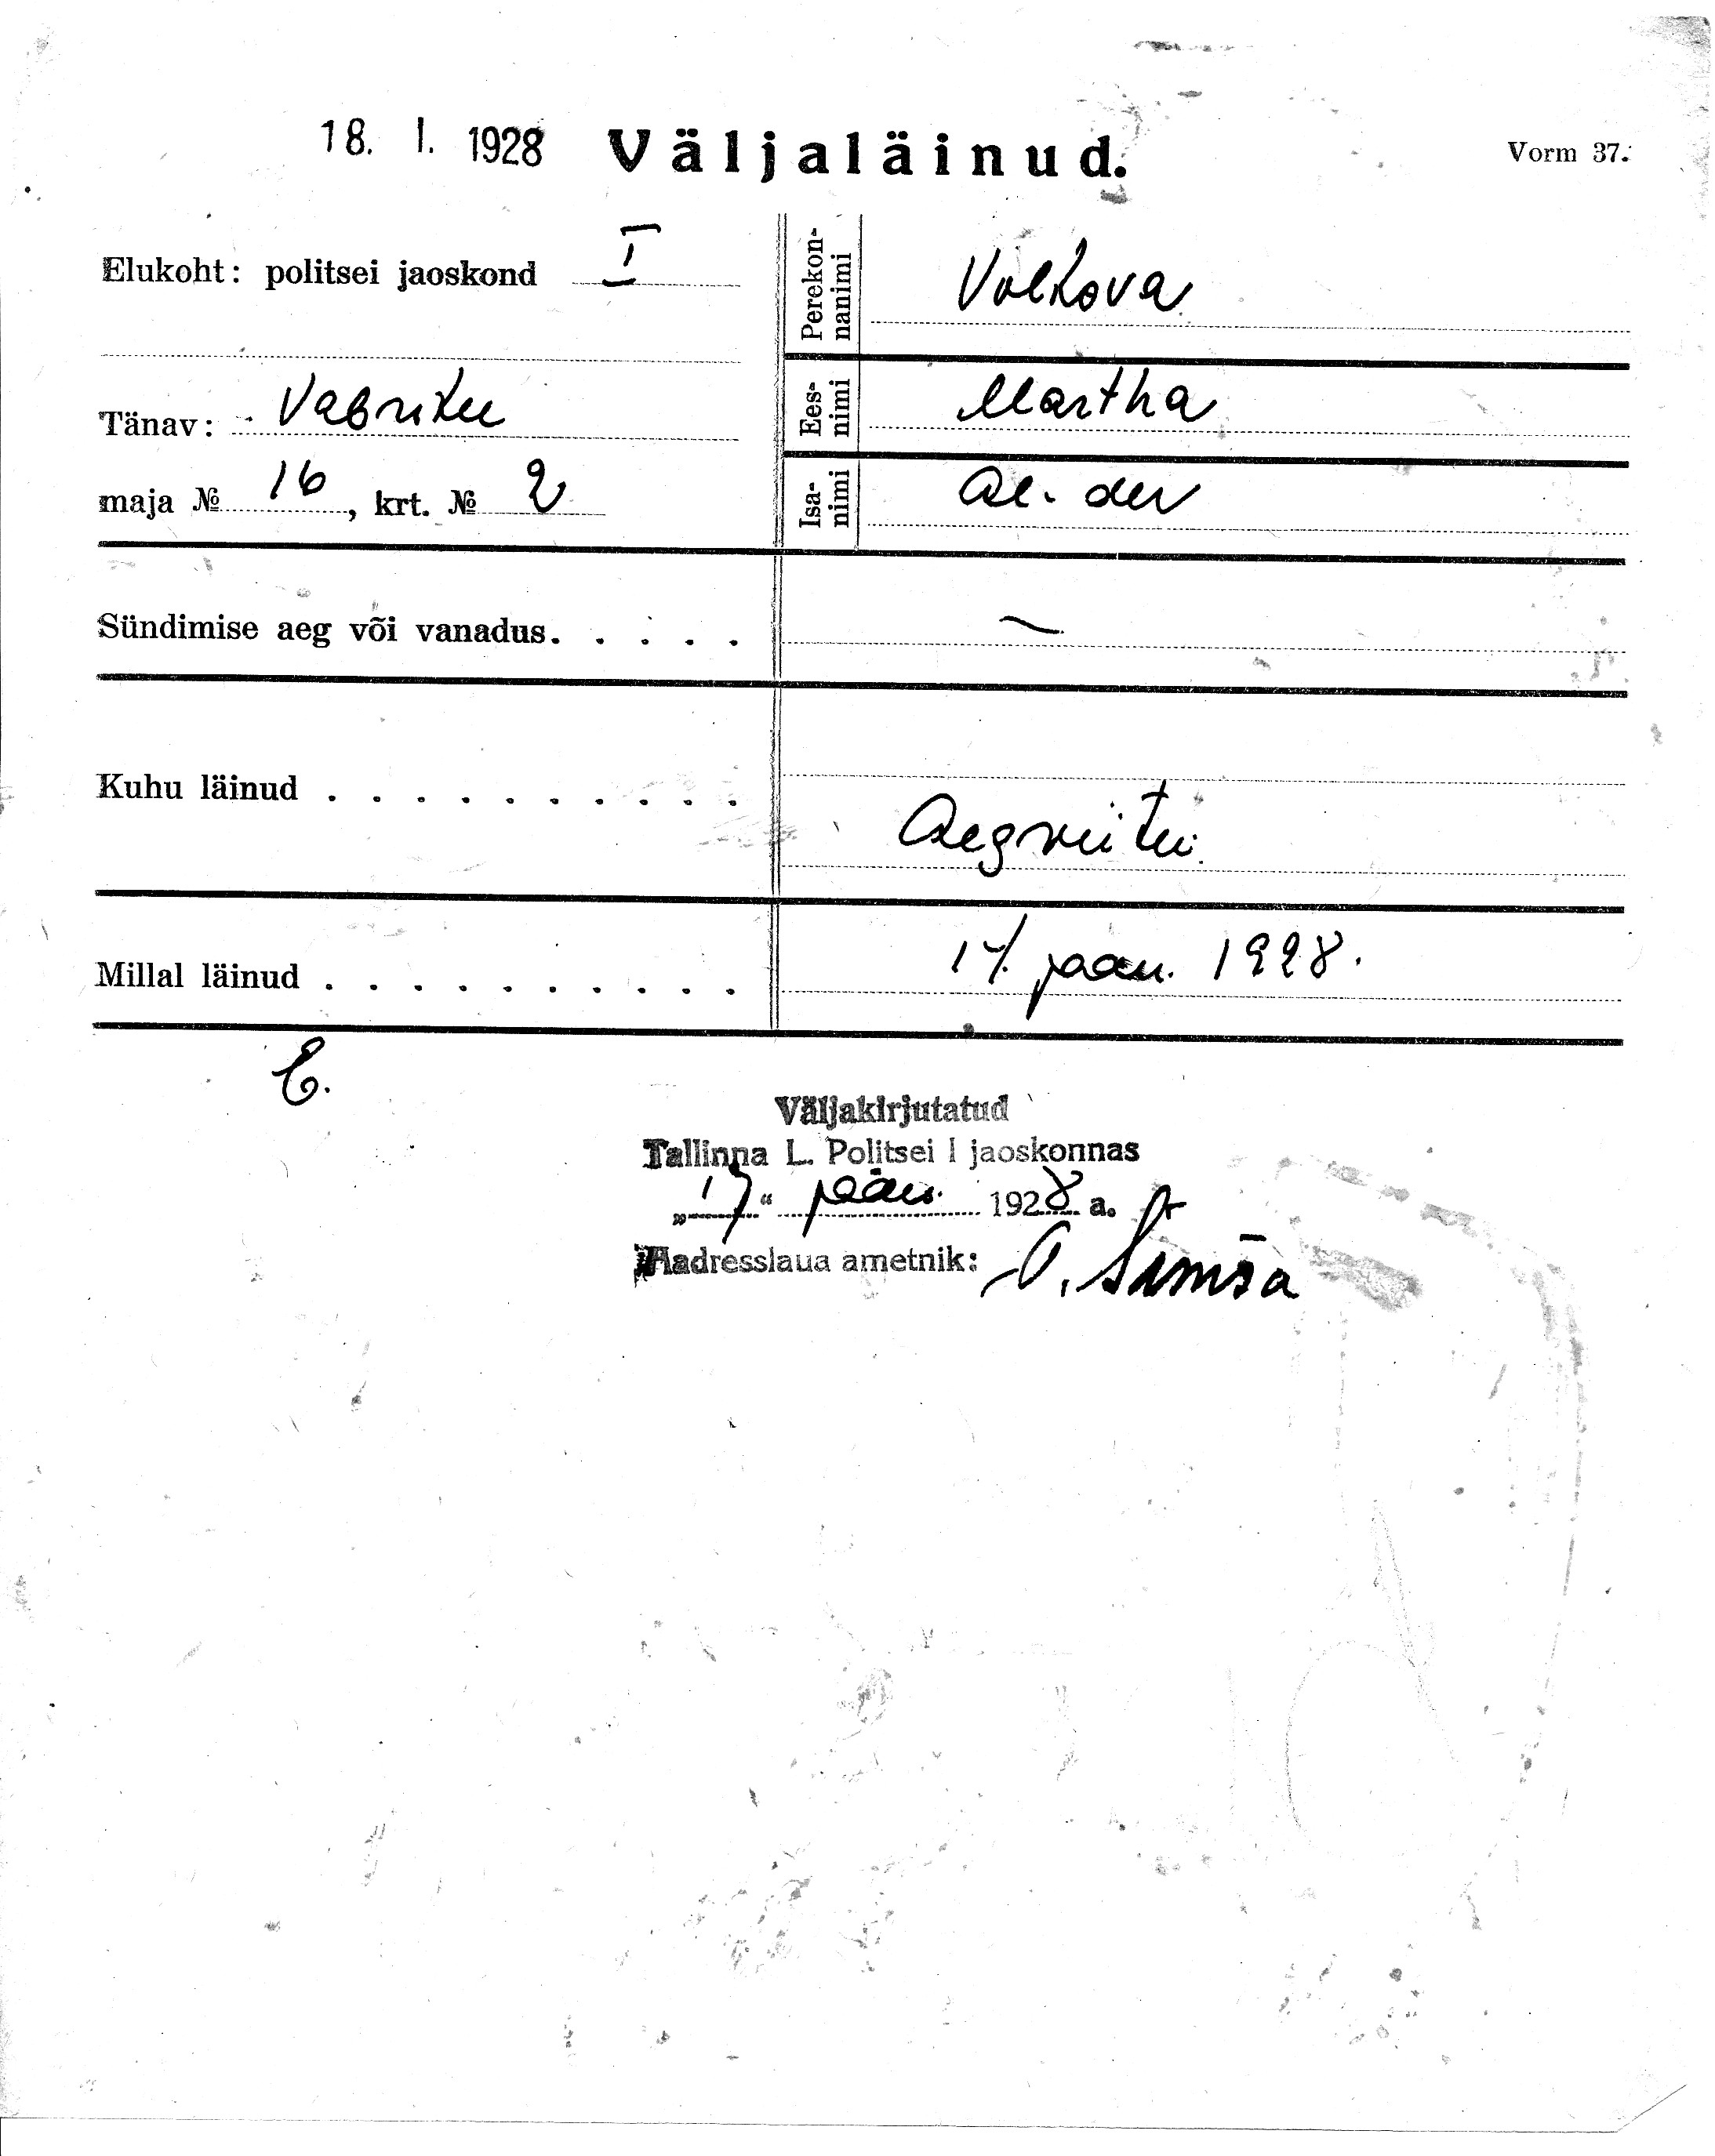 18. I. 1928 Väljaläinud. Vorm 37.
Elukoht: politsei jaoskond I
Tänav: Vabriku
maja № 16, krt. № 2
Perekon-
nanimi
Volkova
Ees-
nimi
Martha
Isa-
nimi
Al-der
Sündimise aeg või vanadus. . . . . —
Kuhu läinud . . . . . . . . . .
Aegviitu.
Millal läinud . . . . . . . . . . jaan. 1928.
E.
Väljakirjutatud
Tallinna L. Politsei I jaoskonnas
„17“ jaan. 1928 a.
Aadresslaua ametnik: